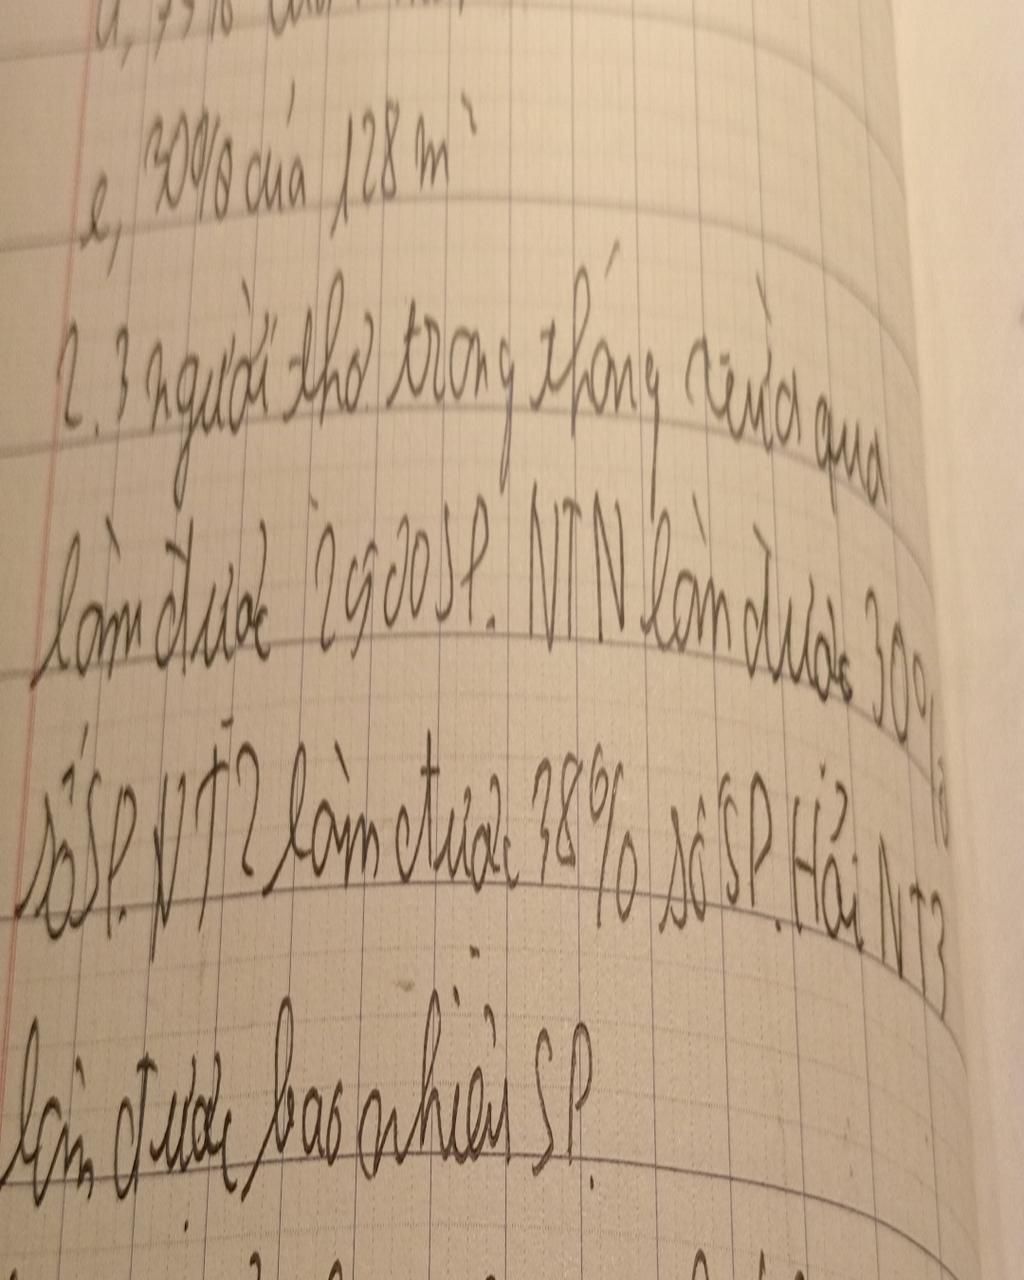 e, 30% của 128 m
2. 3 người thợ trong tháng vừa qua
làm được 2900 SP. NTN làm được 30%
số SP. NT2 làm được 38% số SP. Hỏi NT3
làm được bao nhiêu SP.